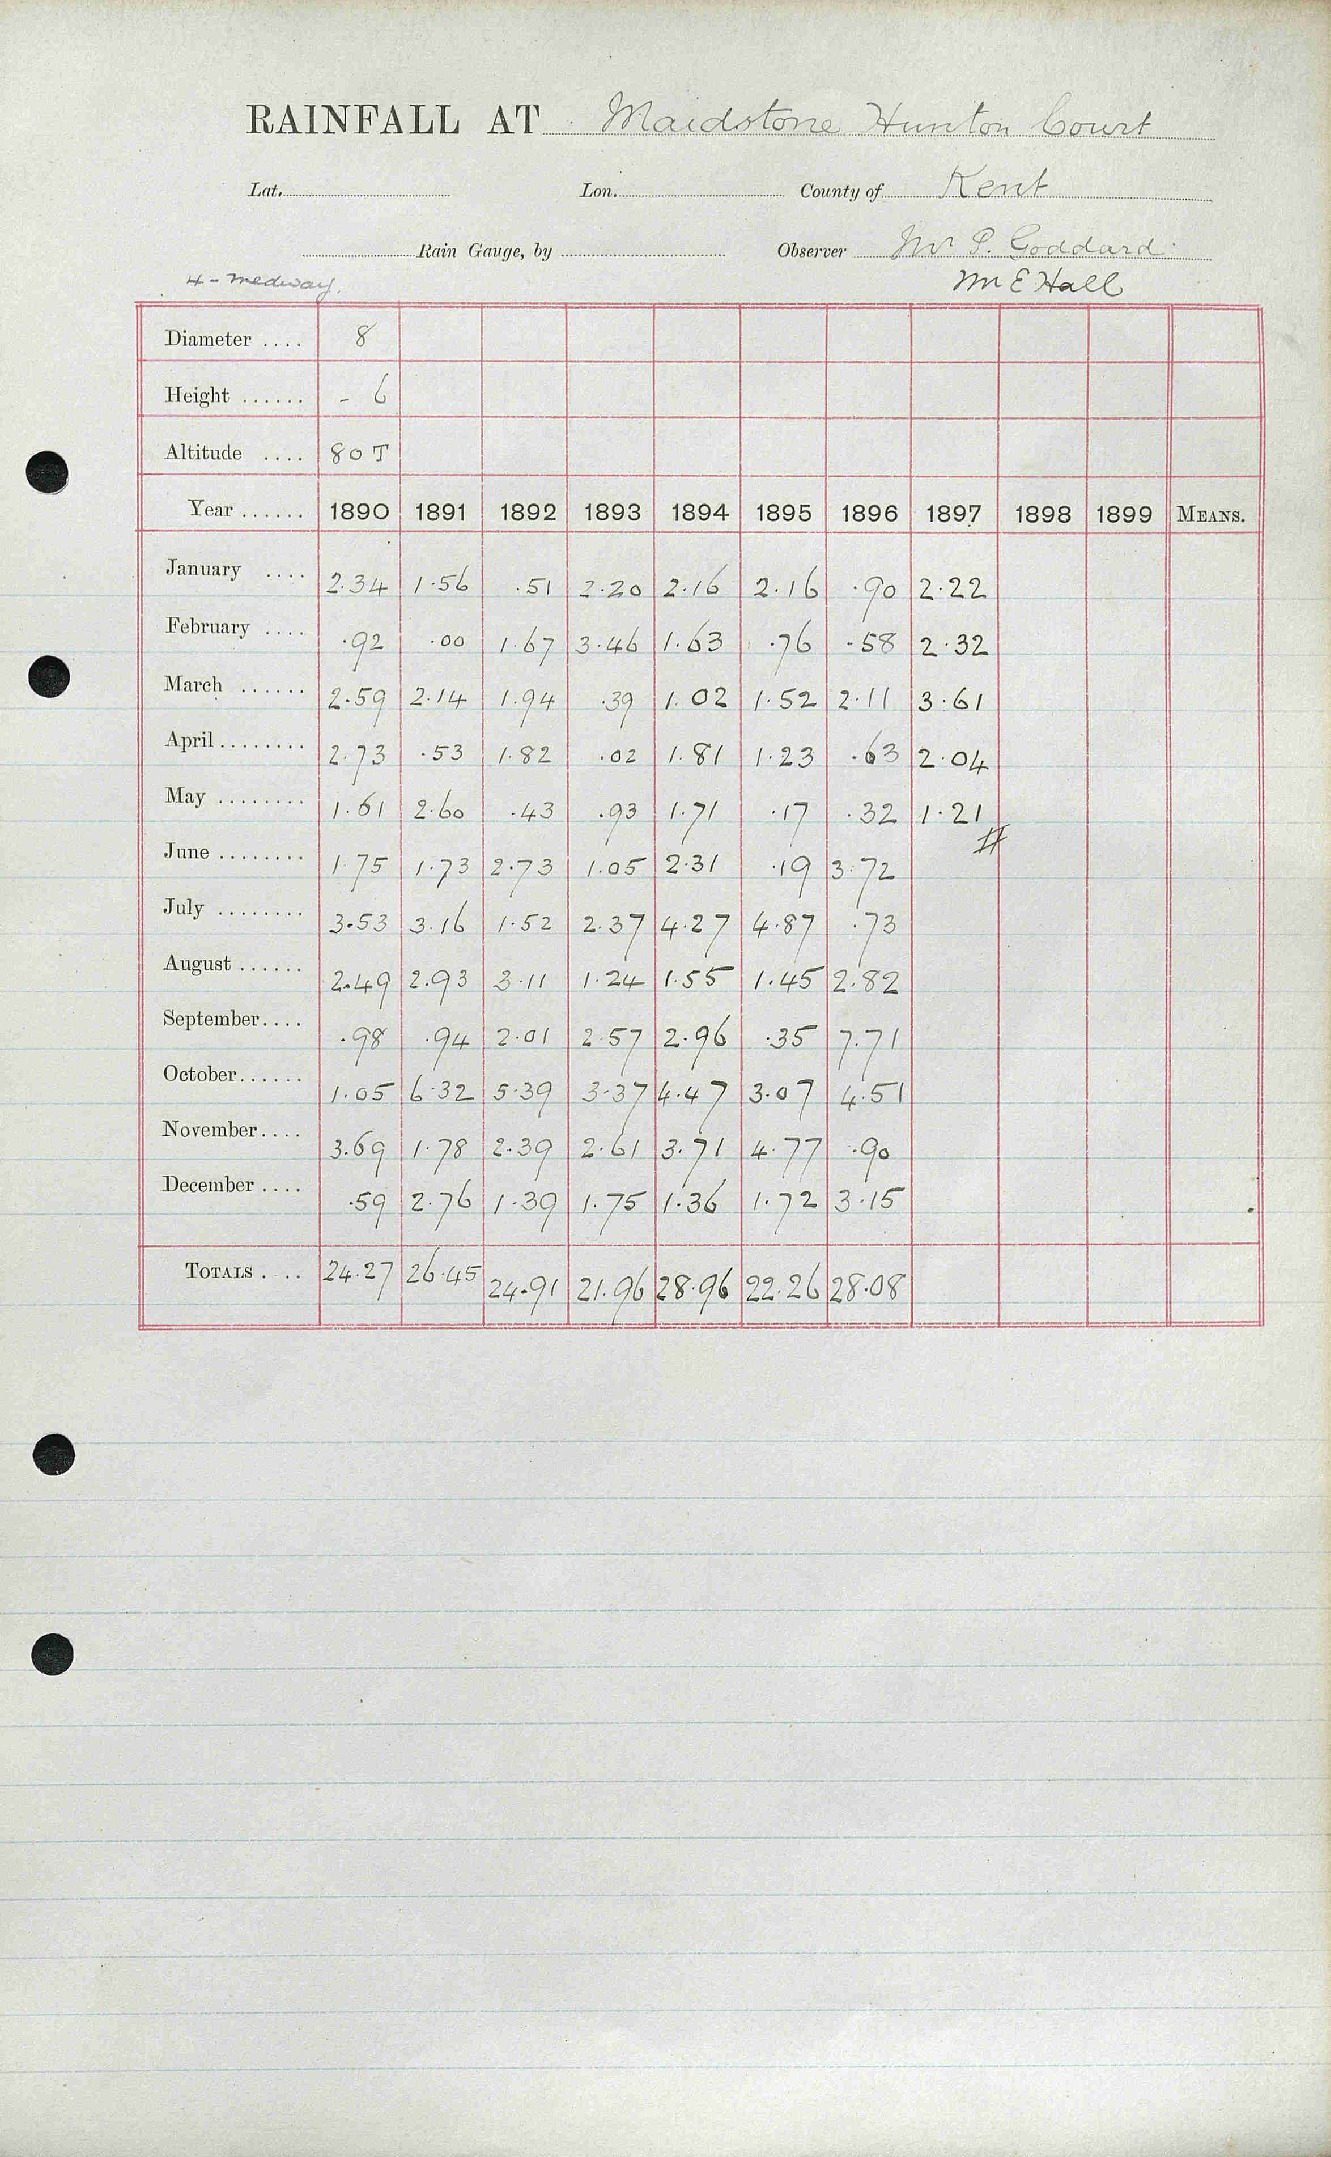 RAINFALL AT Maidstone Hunton Court
Lat. Lon. County of Kent
Rain Gauge, by Observer Mr P. Goddard
4 - Medway. Mr E Hall
Diameter .... 8
Height ...... - 6
Altitude .... 80 T
Year ...... 1890 1891 1892 1893 1894 1895 1896 1897 1898 1899 MEANS.
January .... 2.34 1.56 .51 2.20 2.16 2.16 .90 2.22
February .... .92 .00 1.67 3.46 1.63 .76 .58 2.32
March ...... 2.59 2.14 1.94 .39 1.02 1.52 2.11 3.61
April ........ 2.73 .53 1.82 .02 1.81 1.23 .63 2.04
May ........ 1.61 2.60 .43 .93 1.71 .17 .32 1.21
June ........ 1.75 1.73 2.73 1.05 2.31 .19 3.72 #
July ........ 3.53 3.16 1.52 2.37 4.27 4.87 .73
August ...... 2.49 2.93 3.11 1.24 1.55 1.45 2.82
September.... .98 .94 2.01 2.57 2.96 .35 7.71
October...... 1.05 6.32 5.39 3.37 4.47 3.07 4.51
November.... 3.69 1.78 2.39 2.61 3.71 4.77 .90
December .... .59 2.76 1.39 1.75 1.36 1.72 3.15
TOTALS . .. 24.27 26.45 24.91 21.96 28.96 22.26 28.08